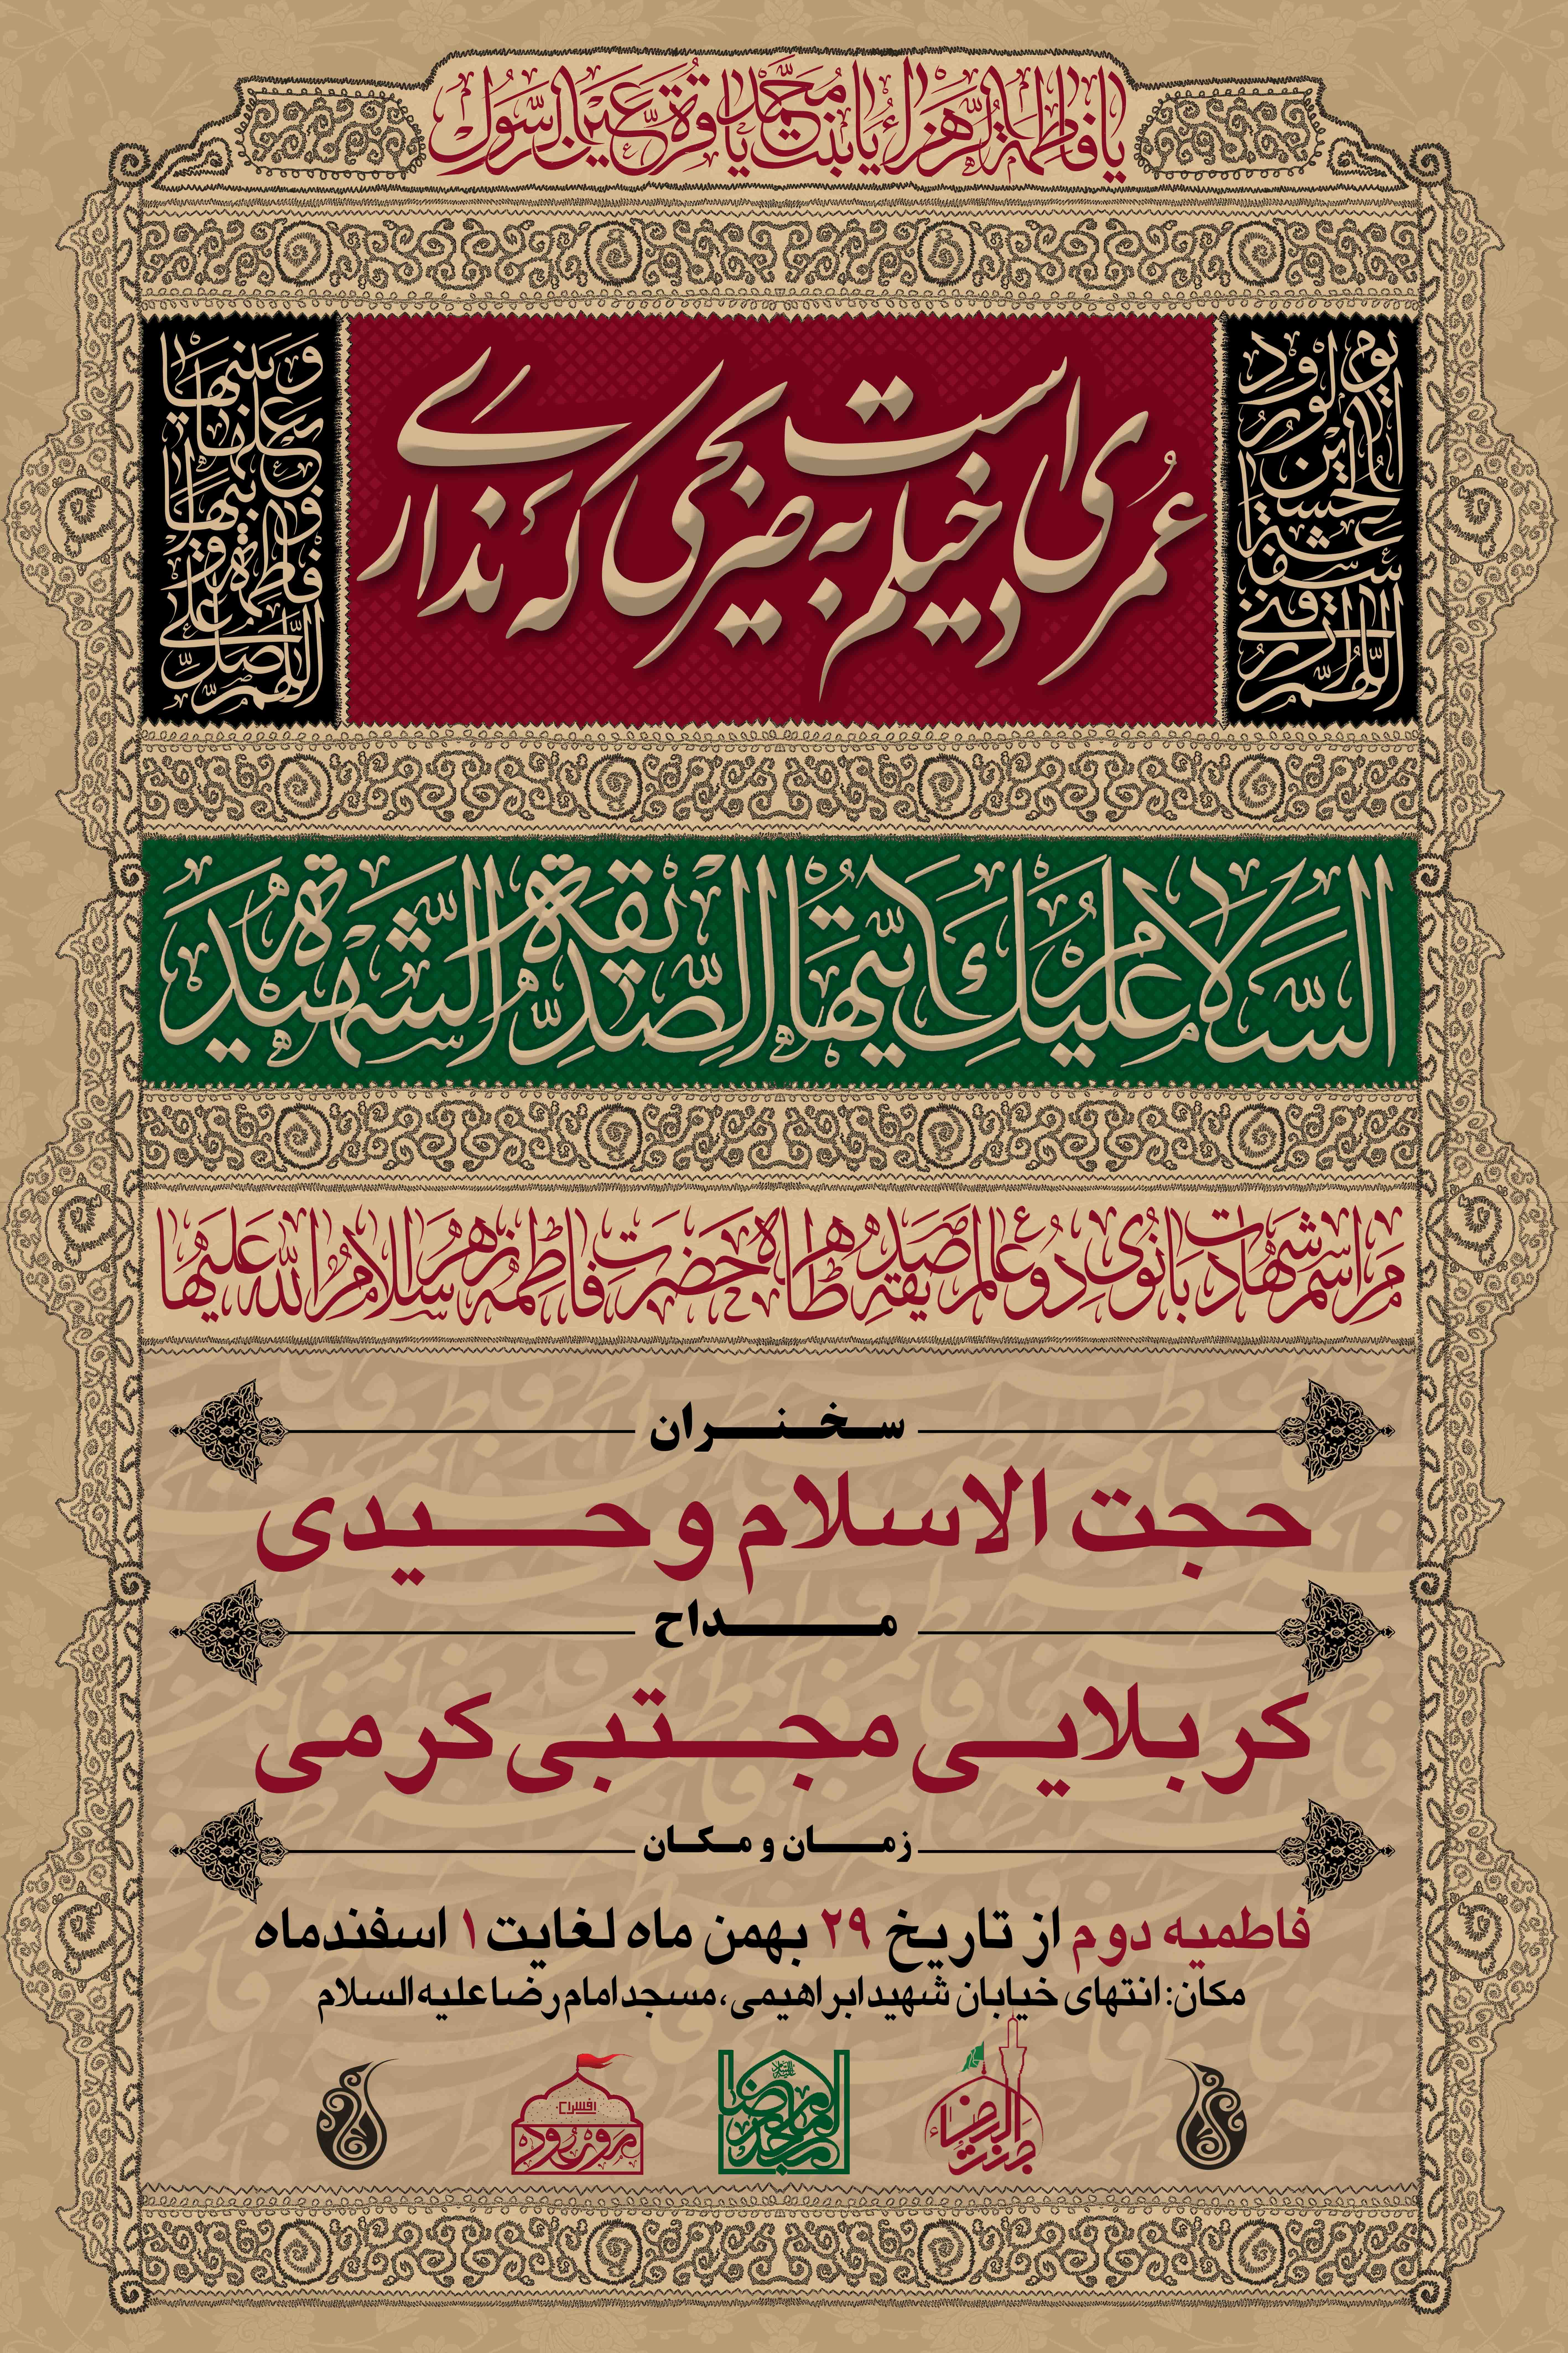 یا فاطمة الزهراء یا بنت محمد یا قرة عین الرسول
اللهم ارزقنی شفاعة الحسین یوم الورود
عمری است دخیلم به ضریحی که نداری
اللهم صل علی فاطمة و ابیها و بعلها و بنیها
السلام علیک ایتها الصدیقة الشهیدة
مراسم شهادت بانوی دو عالم صدیقه طاهره حضرت فاطمه زهرا سلام الله علیها
سخنران
حجت الاسلام وحیدی
مداح
کربلایی مجتبی کرمی
زمان و مکان
فاطمیه دوم از تاریخ ۲۹ بهمن ماه لغایت ۱ اسفندماه
مکان: انتهای خیابان شهید ابراهیمی، مسجد امام رضا علیه السلام
جنت الرضا
مسجد امام رضا